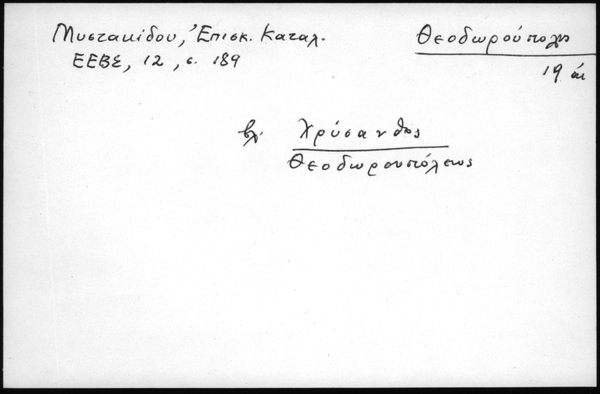 Μυστακίδου, Ἐπισκ. Καταλ.
ΕΕΒΣ, 12, σ. 189
Θεοδωρούπολις
19 αἰ
βλ. Χρύσανθος
Θεοδωρουπόλεως